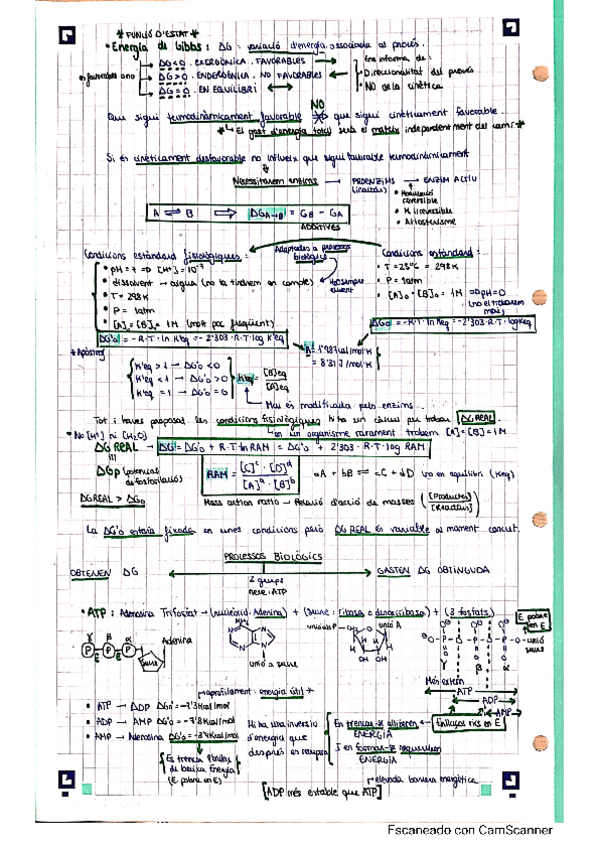 * FUNCIÓ D'ESTAT *
• Energia de Gibbs: ΔG: variació d'energia associada al procés.
→ ΔG<0. EXERGÒNICA. FAVORABLES →
Ens informa de:
és favorable o no → ΔG>0. ENDERGÒNICA. NO FAVORABLES ←
- Direccionalitat del procés
→ ΔG=0. EN EQUILIBRI ↔
• NO de la cinètica
NO
Que sigui termodinàmicament favorable ≠> que sigui cinèticament favorable.
* El gast d'energia total serà el mateix independentment del camí *
Si és cinèticament desfavorable no influeix que sigui favorable termodinàmicament
Necessitarem enzims → PROENZIMS (inactius) → ENZIM ACTIU
• Modulació reversible
• M. irreversible
• Al·losterisme
A ⇌ B ⇒ ΔG A→B = GB - GA
ADDITIVES
Condicions estàndard fisiològiques:
Adaptades a processos biològics
Condicions estàndard:
• pH = 7 ⇒ [H+] = 10⁻⁷
• T = 25ºC = 298K
• dissolvent → aigua (no la tindrem en compte)
• P = 1atm
• T = 298K
• [A]₀ = [B]₀ = 1M ⇒ pH=0
• P = 1atm
• [A]₀ = [B]₀ = 1M (molt poc freqüent)
ΔG₀ = -R·T·ln Keq = -2'303·R·T·log Keq
ΔG'₀ = -R·T·ln K'eq = -2'303·R·T·log K'eq
R = 1'987 cal/mol·K
= 8'31 J/mol·K
* Apòstrof
K'eq > 1 → ΔG'₀ < 0
K'eq < 1 → ΔG'₀ > 0
K'eq = 1 → ΔG'₀ = 0
K'eq = [B]eq / [A]eq
Mai és modificada pels enzims...
Tot i haver proposat les condicions fisiològiques hi ha un càlcul per trobar ΔG REAL.
en un organisme rarament trobem [A]=[B]=1M
• No [H+] ni [H2O]
ΔG REAL → ΔG = ΔG'₀ + R·T·ln RAM = ΔG'₀ + 2'303·R·T·log RAM
ΔGp (potencial de fosforilació)
RAM = [C]ᶜ·[D]ᵈ / [A]ᵃ·[B]ᵇ
aA + bB ⇌ cC + dD (no en equilibri (Keq)
ΔG REAL > ΔG₀
Mass action ratio → Relació d'acció de masses ([Productes] / [Reactius])
La ΔG'₀ estarà fixada en unes condicions però ΔG REAL és variable al moment concret.
PROCESSOS BIOLÒGICS
OBTENEN ΔG
GASTEN ΔG OBTINGUDA
2 grups
nexe: ATP
• ATP: Adenosina Trifosfat → (nucleòsid. Adenina) + (sucre: ribosa o desoxiribosa) + (3 fosfats)
γ β α
Adenina
P P P
E E
sucre
NH2
unió a sucre
unió als P
unió A
OH OH
unió sucre
γ β α
Més extern
ATP
ADP
AMP
aprofitament: energia útil *
• ATP → ADP ΔG'₀ = -7'3 Kcal/mol
• ADP → AMP ΔG'₀ = -7'8 Kcal/mol
• AMP → Adenosina ΔG'₀ = -3'4 Kcal/mol
Hi ha una inversió d'energia que després es recupera
En trencar-se alliberen ENERGIA
Enllaços rics en E
I en formar-se requereixen ENERGIA
(E. pobre en E)
elevada barrera energètica
[ADP més estable que ATP]
Escaneado con CamScanner